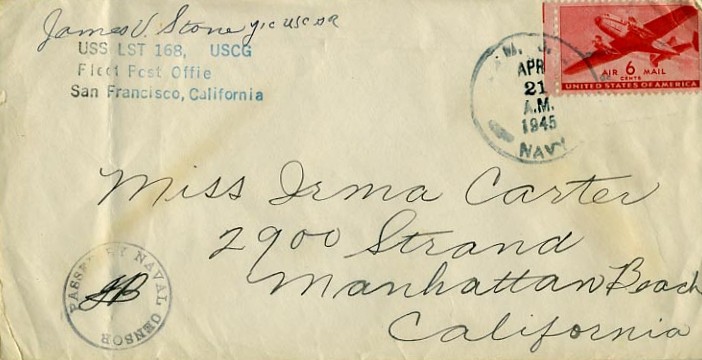 James V. Stone Y1c USCGR
USS LST 168, USCG
Fleet Post Offie
San Francisco, California
APR
21
A.M.
1945
NAVY
AIR 6 MAIL
CENTS
UNITED STATES OF AMERICA
Miss Irma Carter
2900 Strand
Manhattan Beach
California
PASSED BY NAVAL CENSOR